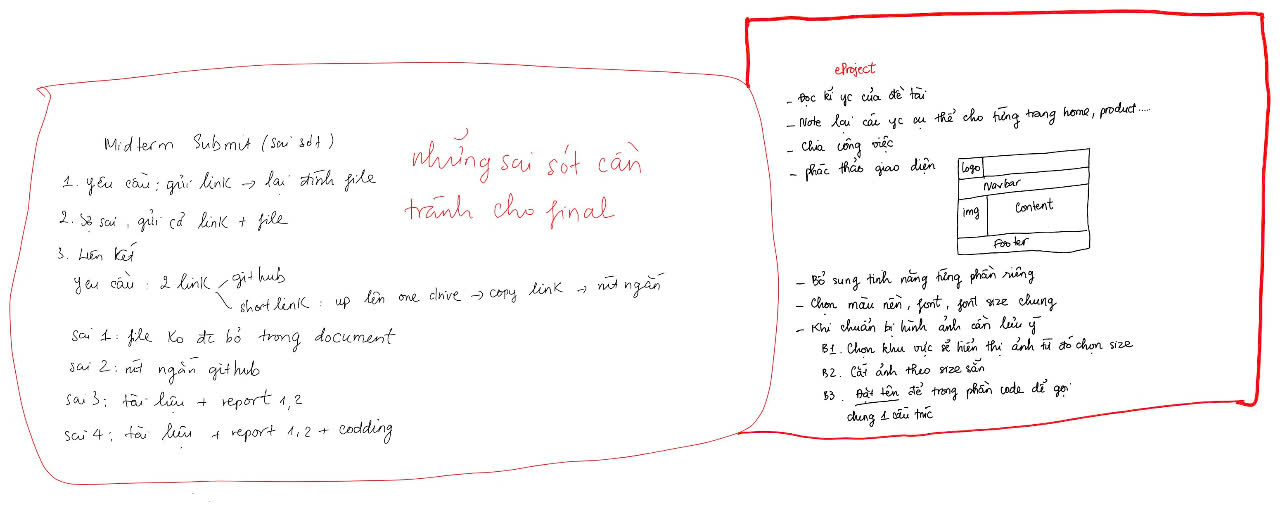 Midterm Submit (sai sót)
1. yêu cầu: gửi link → lại đính file
2. Sợ sai, gửi cả link + file
3. Liên kết
yêu cầu: 2 link
github
shortlink: up lên one drive → copy link → rút ngắn
sai 1: file ko đc bỏ trong document
sai 2: rút ngắn github
sai 3: tài liệu + report 1,2
sai 4: tài liệu + report 1,2 + codding
những sai sót cần
tránh cho final
eProject
- Đọc kĩ yc của đề tài
- Note lại các yc cụ thể cho từng trang home, product.....
- Chia công việc
- phác thảo giao diện
Logo
Navbar
img
Content
Footer
- Bổ sung tính năng từng phần riêng
- Chọn màu nền, font, font size chung
- Khi chuẩn bị hình ảnh cần lưu ý
B1. Chọn khu vực sẽ hiển thị ảnh từ đó chọn size
B2. Cắt ảnh theo size sẵn
B3. Đặt tên để trong phần code dễ gọi
dùng 1 cấu trúc